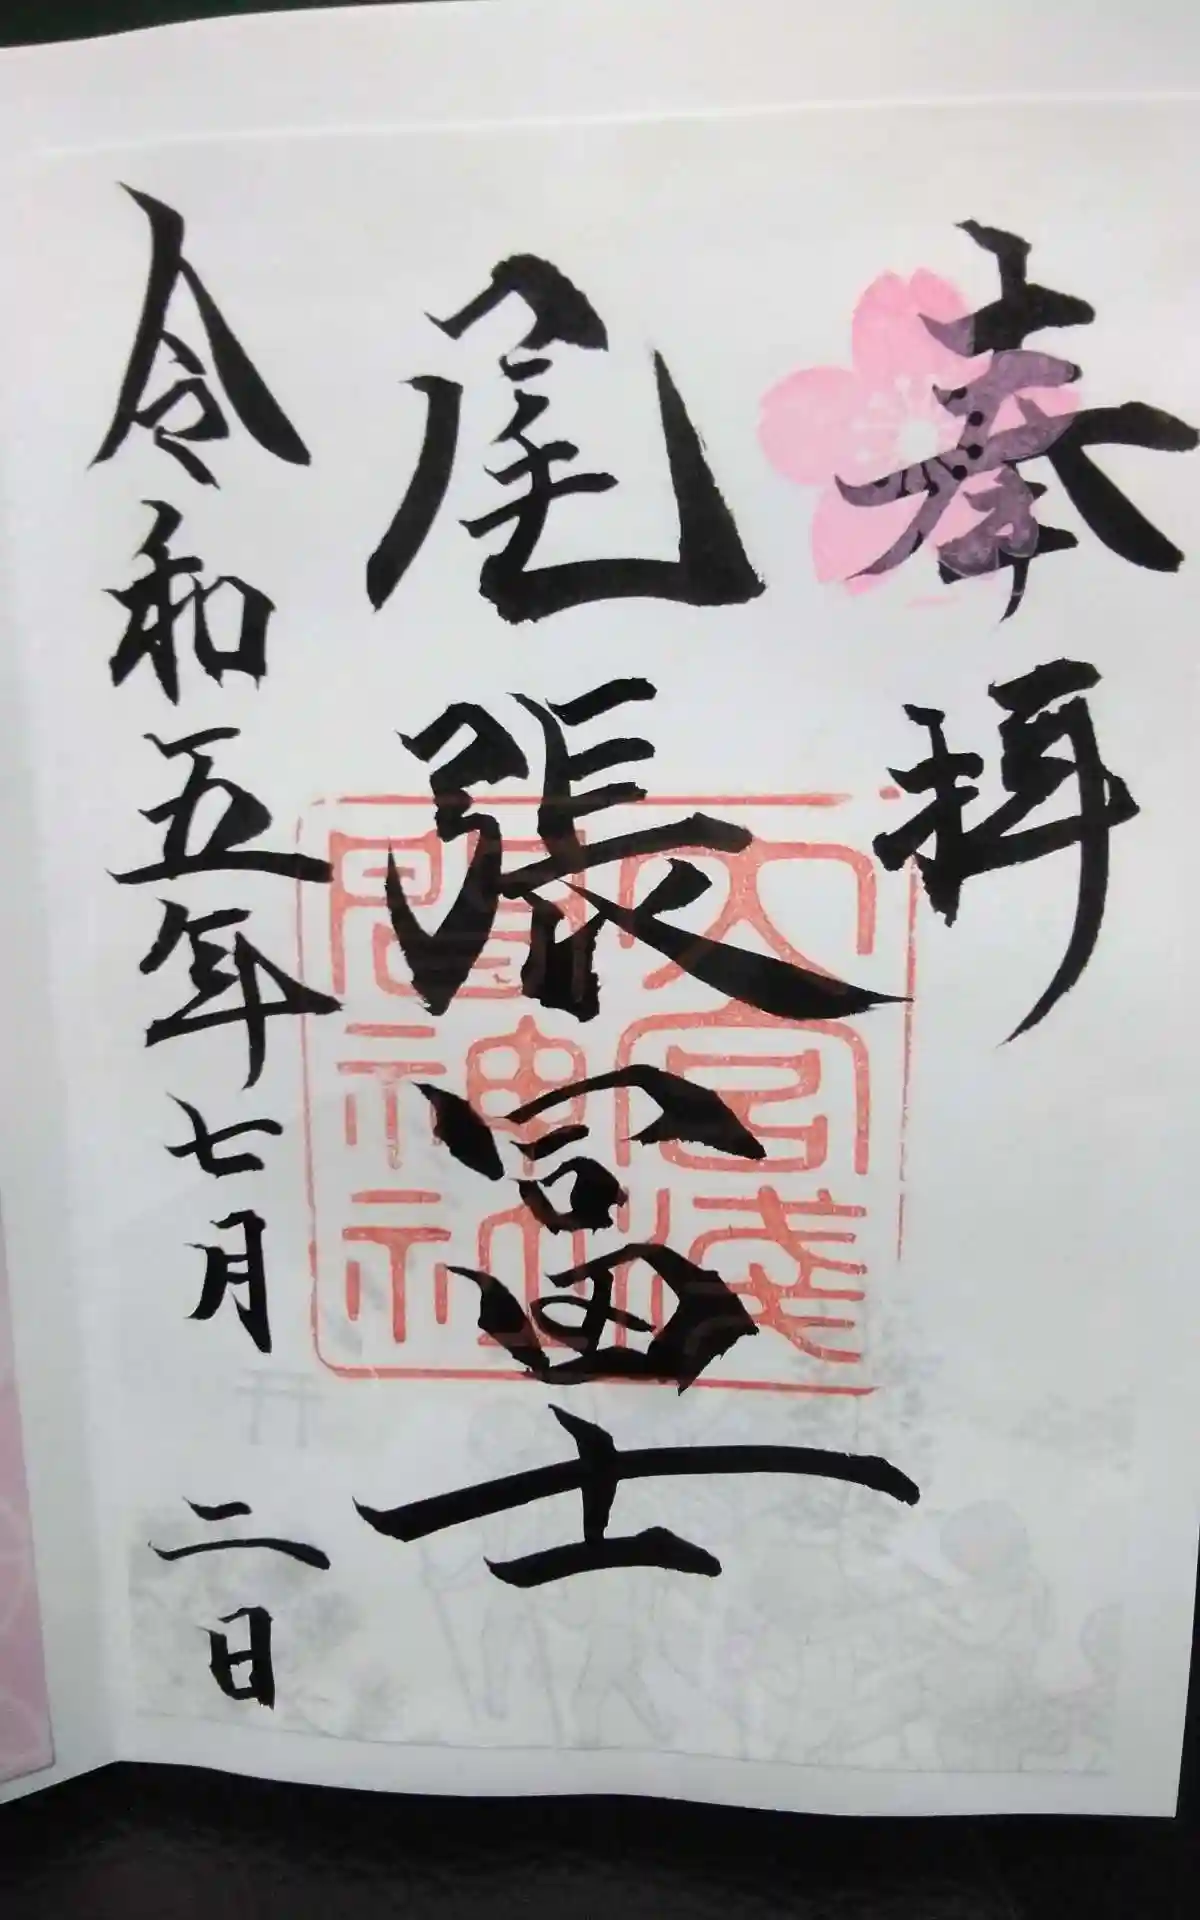 奉拝
尾張冨士
大宮浅
間神社
令和五年七月二日